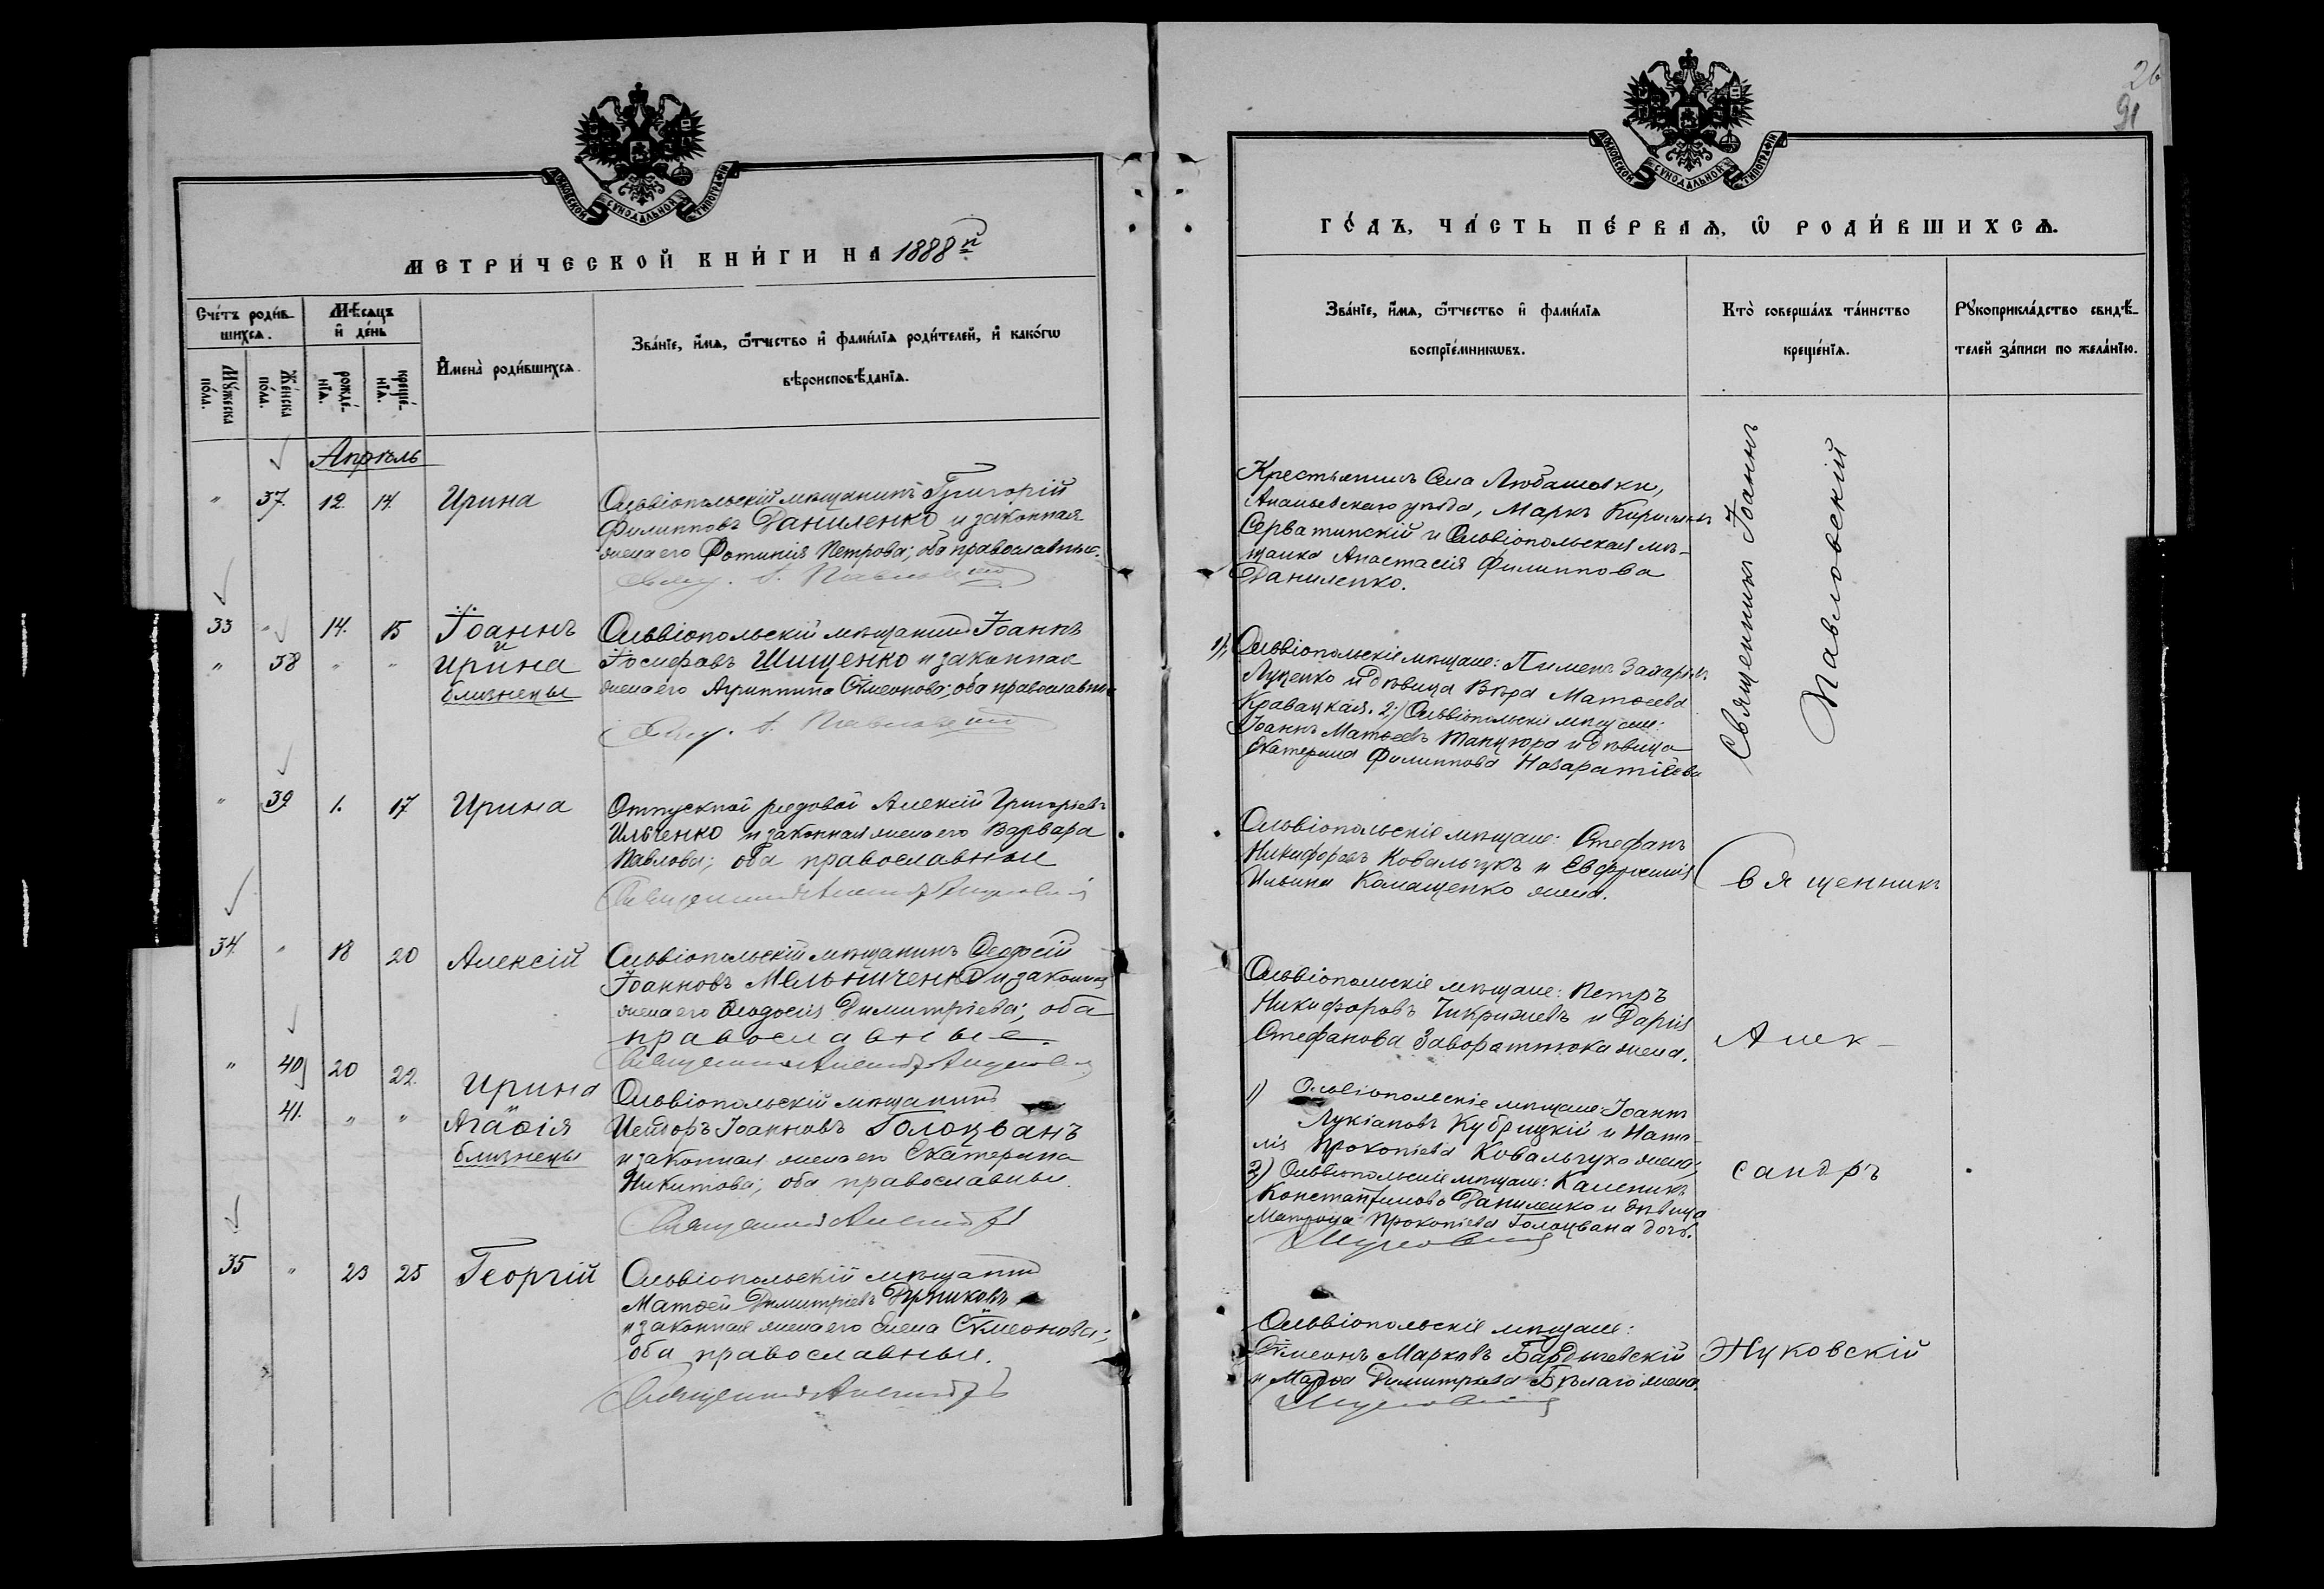 МОСКОВСКОЙ СѴНОДАЛЬНОЙ ТИПОГРАФІИ
МЕТРИ́ЧЕСКОЙ КНИ́ГИ НА 1888й
Сче́тъ роди́в-
шихсѧ.
Мѣ́сѧцъ
и҆ де́нь
Мꙋ́жеска
по́ла.
Же́нска
по́ла.
рожде́-
нїѧ.
креще́-
нїѧ.
И҆мена̀ роди́вшихсѧ.
Зва́нїе, и҆́мѧ, ѻ҆́тчество и҆ фами́лїѧ роди́телей, и҆ како́гѡ
вѣроисповѣ́данїѧ.
Апрѣль
" 37. 12. 14. Ирина
Ольвіопольскій мѣщанинъ Григорій
Филипповъ Даниленко и законная
жена его Фотинія Петрова; оба православные.
33 " 14. 15 Іоаннъ
и
" 38 " " Ирина
близнецы
Ольвіопольскій мѣщанинъ Іоаннъ
Іосифовъ Шищенко и законная
жена его Агриппина Сѵмеонова; оба православные
" 39 1. 17 Ирина
Отпускной рядовой Алексій Григорьевъ
Ильченко и законная жена его Варвара
Павлова; оба православные
34. " 18 20 Алексій
Ольвіопольскій мѣщанинъ Ѳеодосій
Іоанновъ Мельниченко и законная
жена его Ѳеодосія Димитріева; оба
православные.
" 40 20 22. Ирина
41. " " Агаѳія
близнецы
Ольвіопольскій мѣщанинъ
Іоанновъ Голоцванъ
и законная жена его Екатерина
Никитова; оба православные.
35 " 23 25 Георгій
Ольвіопольскій мѣщанинъ
Матѳей Димитріевъ
и законная жена его Елена Сѵмеонова;
оба православные.
26
91
МОСКОВСКОЙ СѴНОДАЛЬНОЙ ТИПОГРАФІИ
ГО́ДЪ, ЧА́СТЬ ПЕ́РВАѦ, Ѡ҆ РОДИ́ВШИХСѦ.
Зва́нїе, и҆́мѧ, ѻ҆́тчество и҆ фами́лїѧ
воспрїе́мникѡвъ.
Кто̀ соверша́лъ та́инство
креще́нїѧ.
Рꙋкоприкла́дство свидѣ́-
телей за́писи по жела́нїю.
Крестьянинъ села Любашовки,
Ананьевскаго уѣзда, Маркъ Кириловъ
Серватинскій и Ольвіопольская мѣ-
щанка Анастасія Филиппова
Даниленко.
Священникъ Іоаннъ
Павловскій
1), Ольвіопольскіе мѣщане: Пименъ Захаріевъ
Луценко и дѣвица Вѣра Матѳеева
Кравацкая. 2.) Ольвіопольскіе мѣщане:
Іоаннъ Матѳеевъ Танцюра и дѣвица
Екатерина Филиппова
Ольвіопольскіе мѣщане: Стефанъ
Никифоровъ Ковальчукъ и Евфросинія
Ильина Комащенко жена.
Священникъ
Ольвіопольскіе мѣщане: Петръ
Никифоровъ Чикрижевъ и Дарія
Стефанова Заворотнюка жена.
Алек-
1) Ольвіопольскіе мѣщане: Іоаннъ
Лукіановъ Кубрицкій и Ната-
лія Прокопіева Ковальчука жена;
2) Ольвіопольскіе мѣщане: Каленикъ
Константиновъ Даниленко и дѣвица
Матрона Прокопіева Голоцвана дочь.
сандръ
Ольвіопольскіе мѣщане:
Сѵмеонъ Марковъ Бардычевскій
и Марѳа Димитріева Бѣлаго жена.
Жуковскій